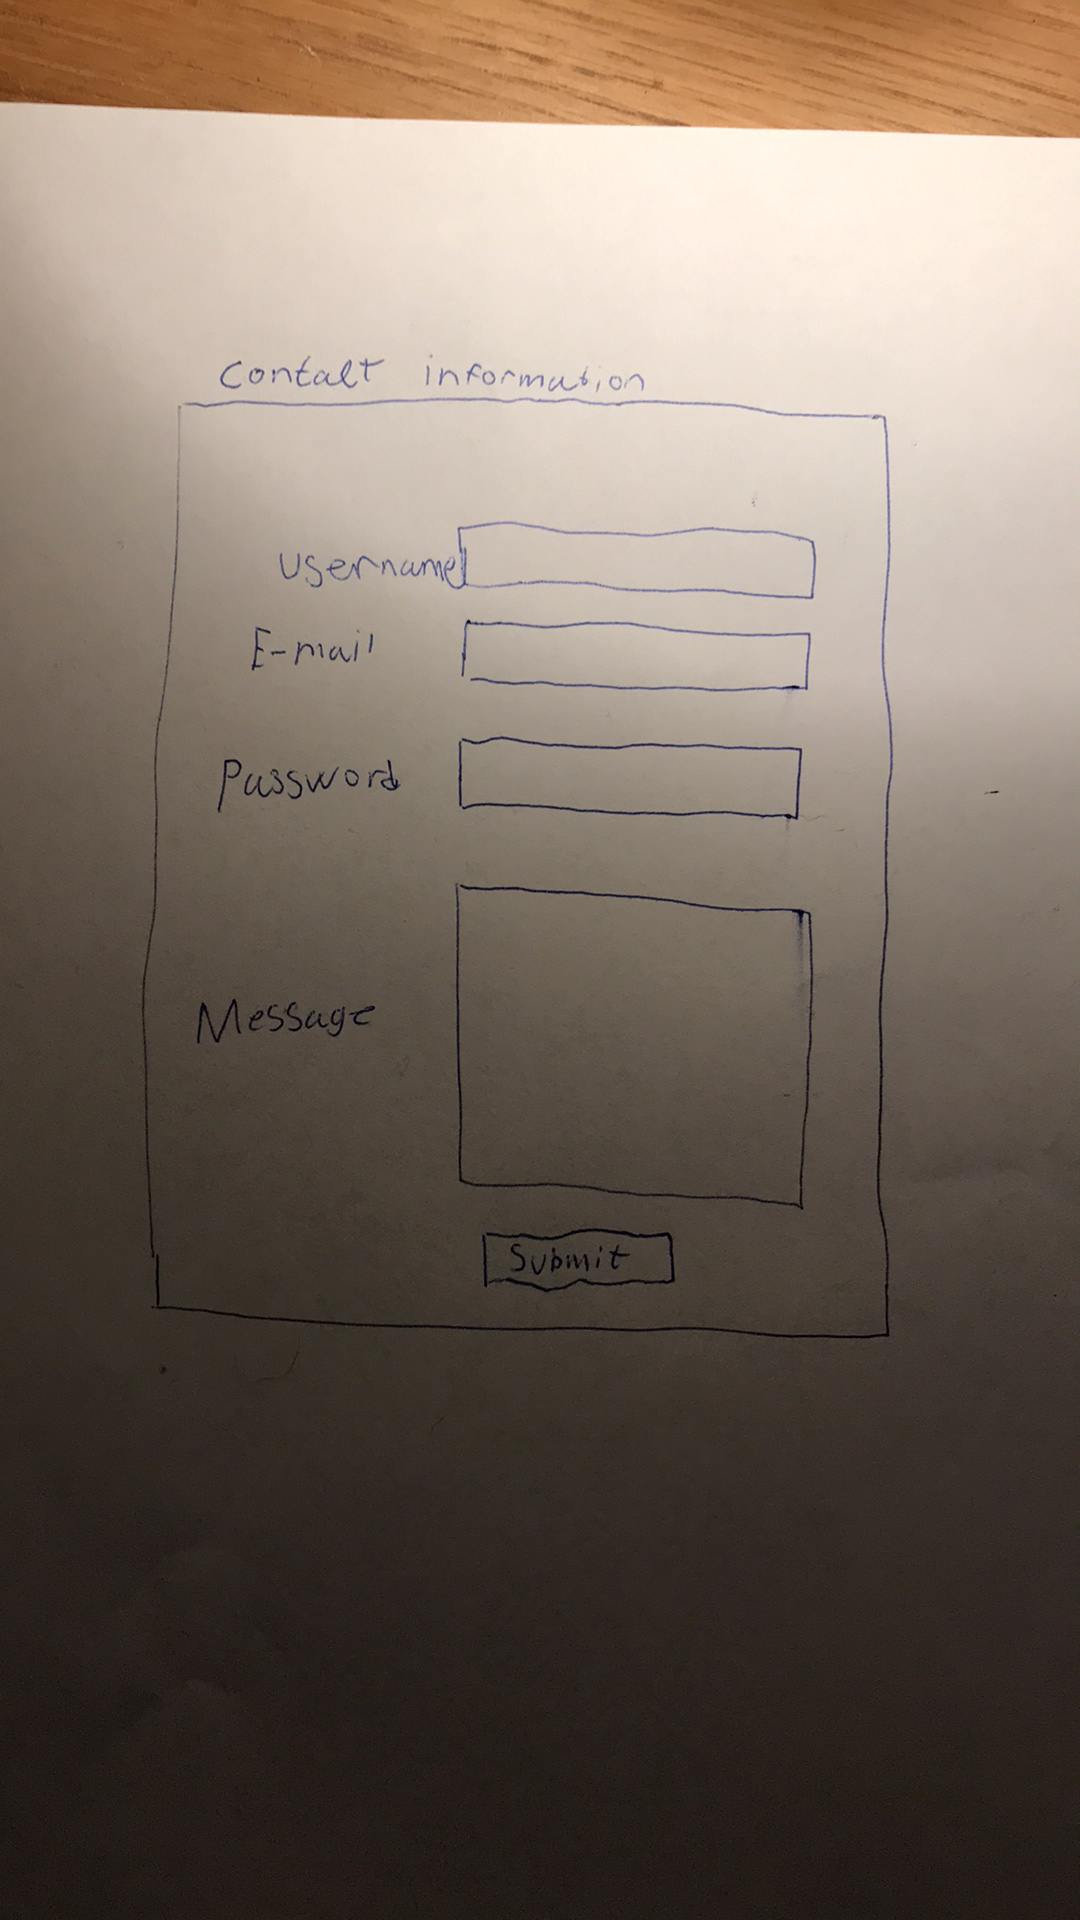 Contact information
Username
E-mail
Password
Message
Submit